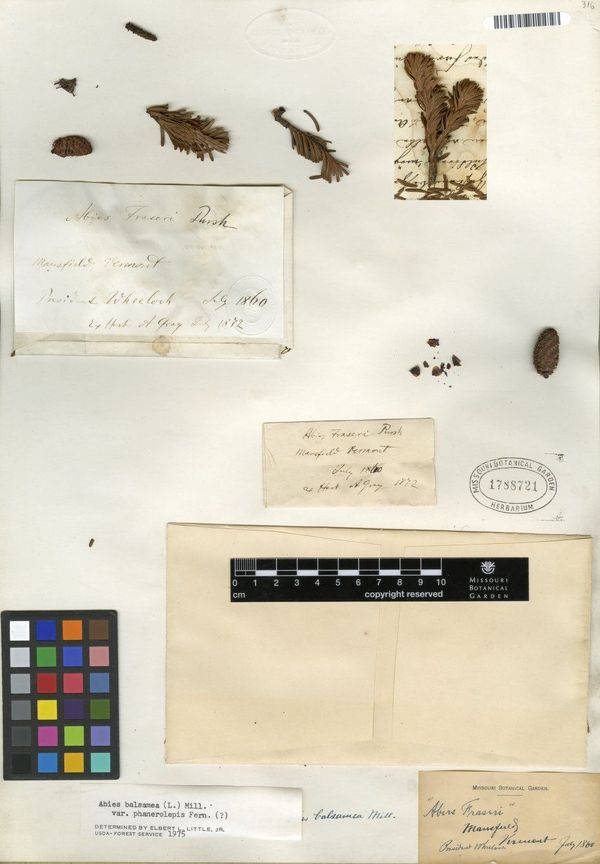 316
Abies Fraseri Pursh
Mansfield Vermont
President Wheelock July 1860
ex Herb A Gray July 1872
Abies Fraseri Pursh
Mansfield Vermont
July 1860
ex Herb A Gray 1872
MISSOURI BOTANICAL GARDEN
1788721
HERBARIUM
0 1 2 3 4 5 6 7 8 9 10
cm
copyright reserved
MISSOURI
BOTANICAL
GARDEN
Abies balsamea (L.) Mill.
var. phanerolepis Fern. (?)
DETERMINED BY ELBERT L. LITTLE, JR.
USDA-FOREST SERVICE 1975
balsamea Mill.
MISSOURI BOTANICAL GARDEN.
"Abies Fraseri"
Mansfield
Vermont
President Wheelock July 1860